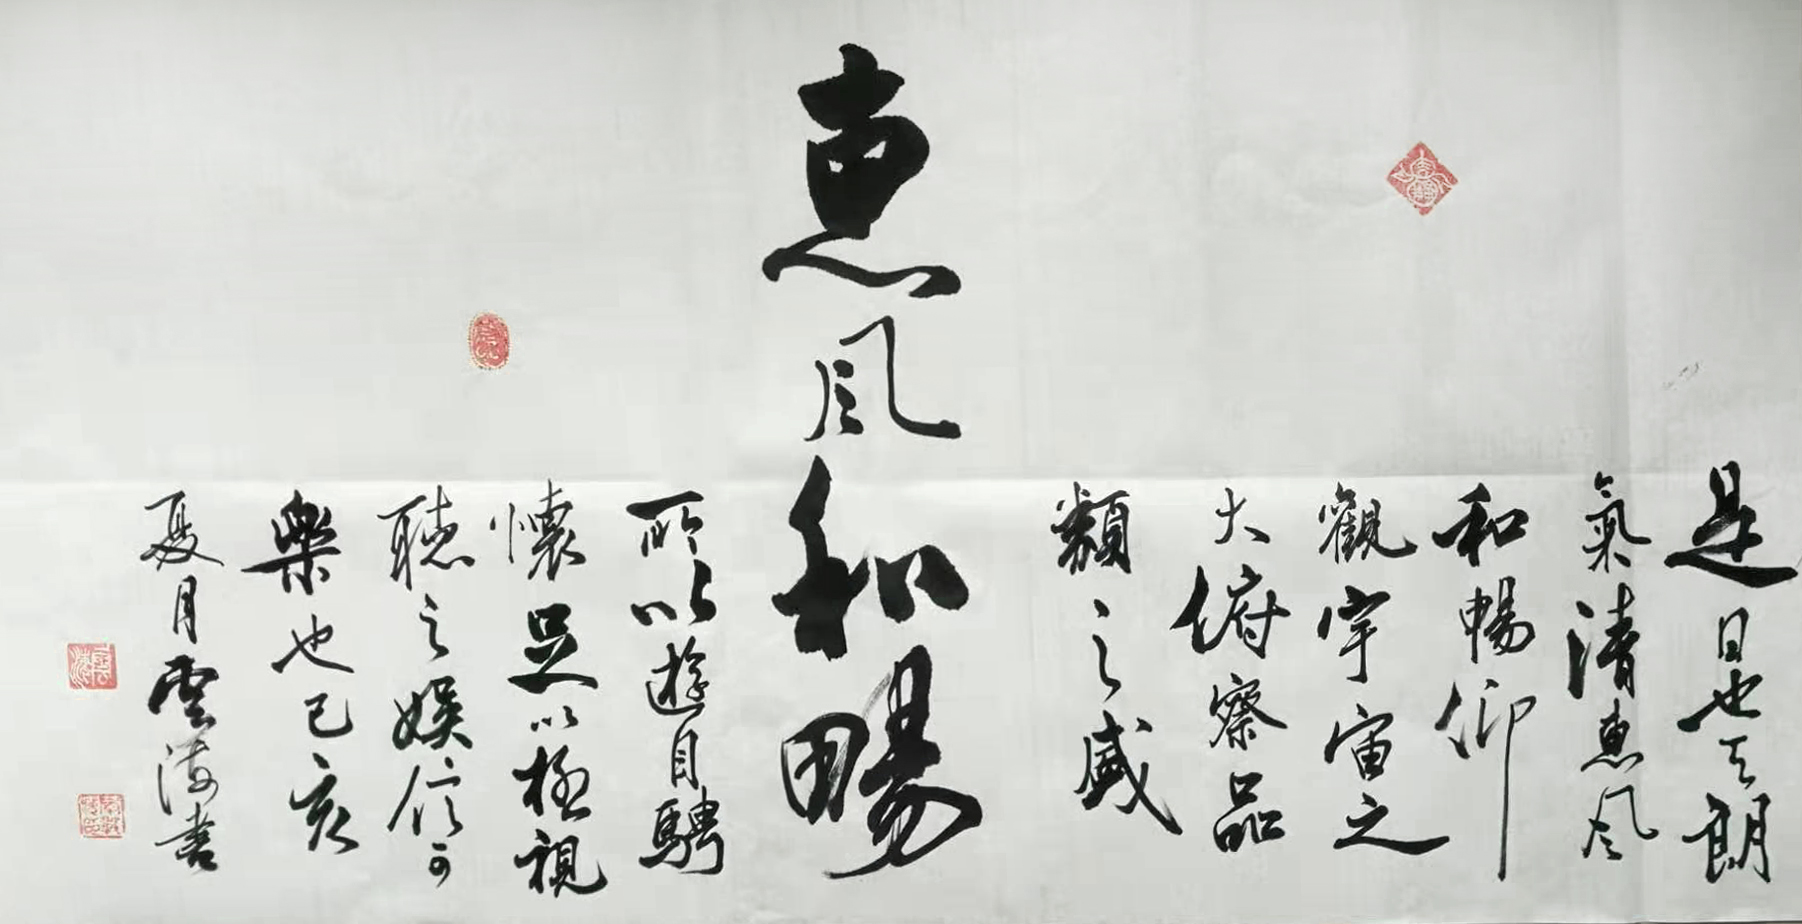 是日也天朗
氣清惠風
和暢仰
觀宇宙之
大俯察品
類之盛
惠风和暢
所以遊目騁
懷足以極視
聽之娱信可
樂也己亥
夏月雲海書
雲海